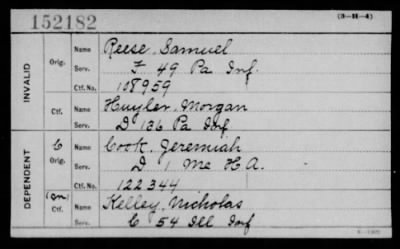 152182
(3-H-4)
INVALID
Orig.
Name
Reese, Samuel
Serv.
F 49 Pa Inf.
Ctf. No.
108959
Ctf.
Name
Huyler, Morgan
Serv.
D 136 Pa Inf
DEPENDENT
C
Orig.
Name
Cook, Jeremiah
Serv.
D 1 Me H.A.
Ctf. No.
122344
Ctf.
Name
Kelley, Nicholas
Serv.
C 54 Ill Inf